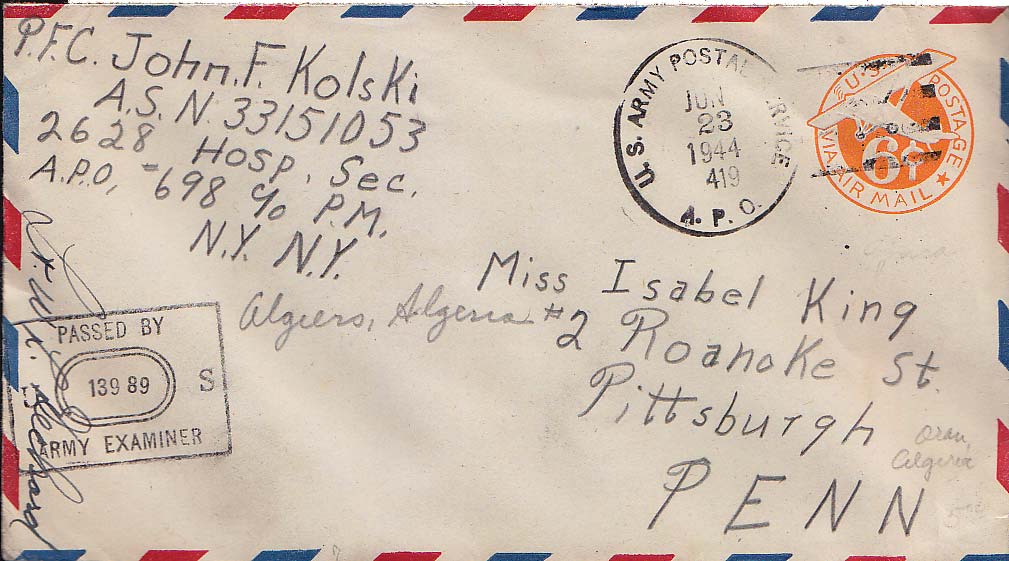 P.F.C. John.F. Kolski
A.S.N. 33151053
2628 Hosp. Sec.
A.P.O. - 698 c/o P.M.
N.Y. N.Y.
U.S. ARMY POSTAL SERVICE
JUN
23
1944
419
A.P.O.
U.S. POSTAGE
6¢
VIA AIR MAIL
Miss Isabel King
#2 Roanoke St.
Pittsburgh
PENN
Algiers, Algeria
PASSED BY
13989
S
ARMY EXAMINER
Oran,
Algeria